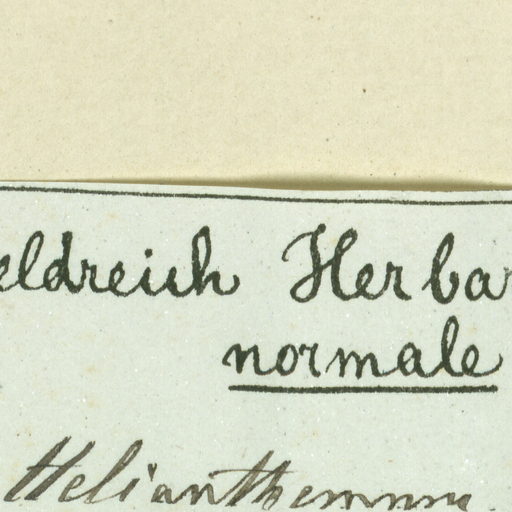 eldreich Herba
normale
Helianthemum